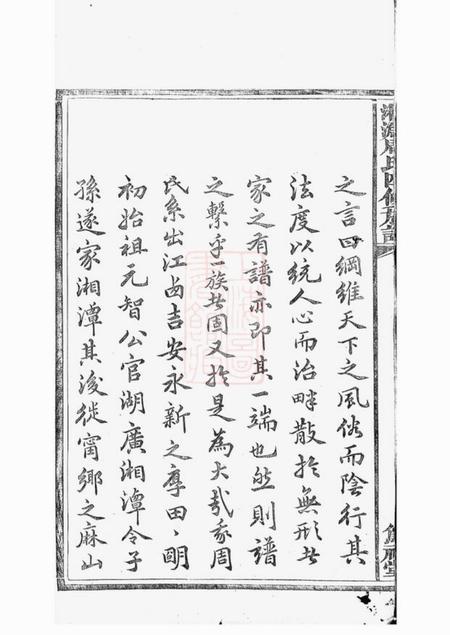 之言曰綱維天下之風俗而陰行其
法度以統人心而治畔散於無形者
家之有譜亦即其一端也然則譜
之繫乎一族者固又於是為大哉我周
氏系出江西吉安永新之厚田明
初始祖元智公官湖廣湘潭令子
孫遂家湘潭其後徙甯鄉之麻山